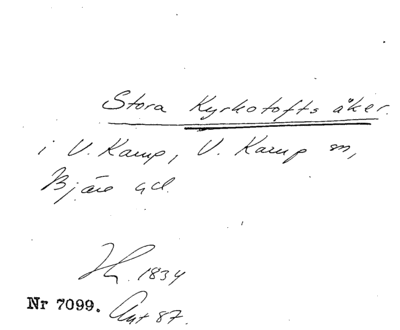 Stora Kyrkotofts åker.
i V. Karup, V. Karup sn,
Bjäre hd.
1834
Nr 7099. Avt 87.